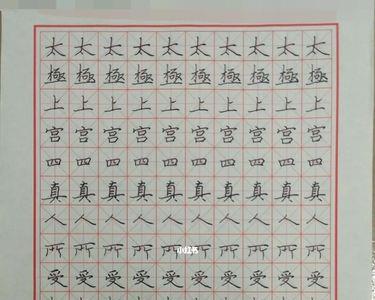 太極上宫四真人所愛
太極上宫四真人所愛
太極上宫四真人所愛
太極上宫四真人所愛
太極上宫四真人所愛
太極上宫四真人所愛
太極上宫四真人所愛
太極上宫四真人所愛
太極上宫四真人所愛
太極上宫四真人所愛
小红书